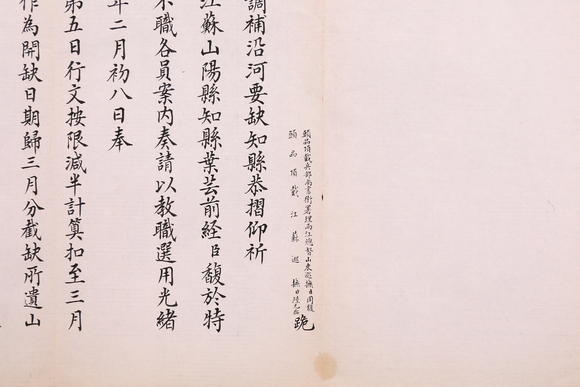 頭品頂戴兵部尚書銜署理兩江總督山東巡撫臣周馥
頭品頂戴江蘇巡撫臣陸元鼎跪
調補沿河要缺知縣恭摺仰祈
江蘇山陽縣知縣葉芸前經臣馥於特
不職各員案內奏請以教職選用光緒
年二月初八日奉
第五日行文按限減半計算扣至三月
作為開缺日期歸三月分截缺所遺山